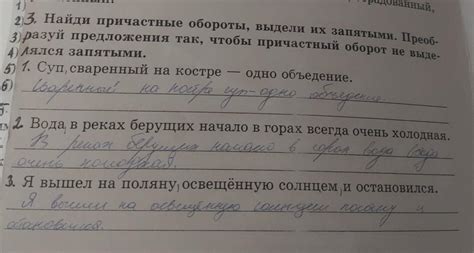 1)
традованный,
2) 3. Найди причастные обороты, выдели их запятыми. Преоб-
3) разуй предложения так, чтобы причастный оборот не выде-
4) лялся запятыми.
5) 1. Суп, сваренный на костре — одно объедение.
6) Сваренный на костре суп-одно объедение.
2. Вода, в реках берущих начало в горах всегда очень холодная.
В реках берущих начало в горах вода всегда
очень холодная.
3. Я вышел на поляну, освещённую солнцем, и остановился.
Я вышел на освещённую солнцем поляну и
остановился.